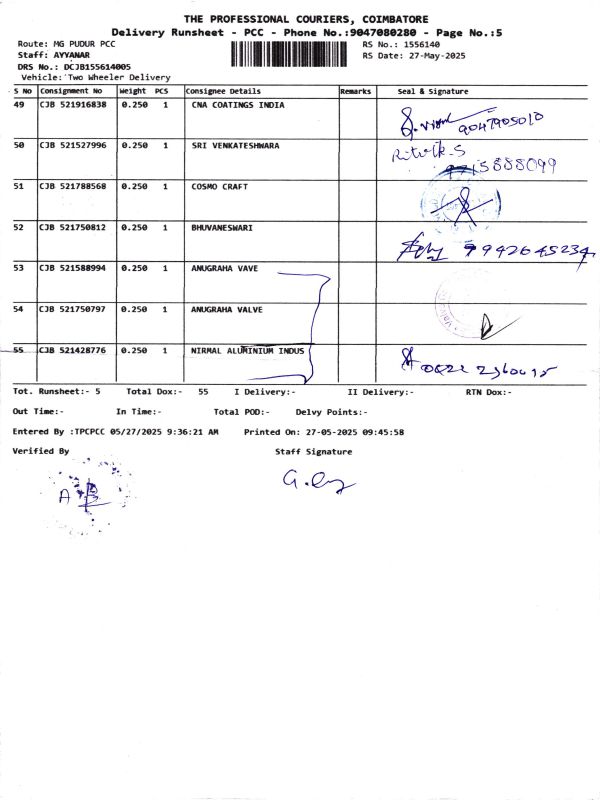 THE PROFESSIONAL COURIERS, COIMBATORE
Delivery Runsheet - PCC - Phone No.:9047080280 - Page No.:5
Route: MG PUDUR PCC RS No.: 1556140
Staff: AYYANAR RS Date: 27-May-2025
DRS No.: DCJB155614005
Vehicle: Two Wheeler Delivery
S No Consignment No Weight PCS Consignee Details Remarks Seal & Signature
49 CJB 521916838 0.250 1 CNA COATINGS INDIA
9047905010
50 CJB 521527996 0.250 1 SRI VENKATESHWARA
9715888099
51 CJB 521788568 0.250 1 COSMO CRAFT
52 CJB 521750812 0.250 1 BHUVANESWARI
9942645234
53 CJB 521588994 0.250 1 ANUGRAHA VAVE
54 CJB 521750797 0.250 1 ANUGRAHA VALVE
55 CJB 521428776 0.250 1 NIRMAL ALUMINIUM INDUS
Tot. Runsheet:- 5 Total Dox:- 55 I Delivery:- II Delivery:- RTN Dox:-
Out Time:- In Time:- Total POD:- Delvy Points:-
Entered By :TPCPCC 05/27/2025 9:36:21 AM Printed On: 27-05-2025 09:45:58
Verified By Staff Signature